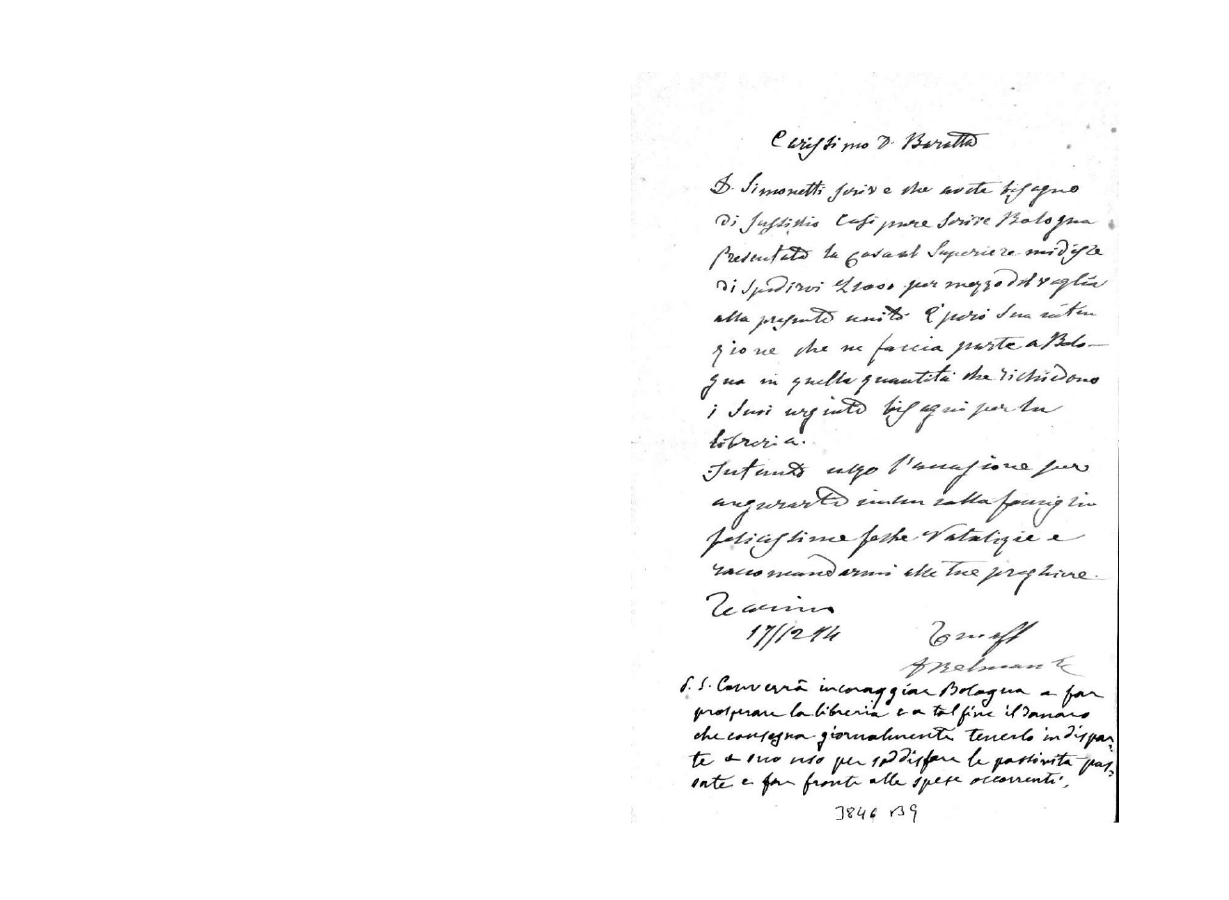 Carissimo D. Baratta
D. Simonetti scrive che avete bisogno
di sussidio Così pure scrive Bologna
Presentata la cosa al Superiore mi disse
di spedirvi £1000 per mezzo del vaglia
alla presente unito È però sua inten
zione che ne faccia parte a Bolo-
gna in quella quantità che richiedono
i suoi urgenti bisogni per la
libreria.
Intanto colgo l'occasione per
augurarti in una colla famiglia
felicissime feste Natalizie e
raccomandarmi alle tue preghiere.
Torino
17/12 94
Tuo aff
D Belmonte
P. S. Converrà incoraggiare Bologna a far
prosperare la libreria e a tal fine il danaro
che consegna giornalmente tenerlo in dispar-
te a suo uso per soddisfare le passività pas-
sate e far fronte alle spese occorrenti.
3846 B9